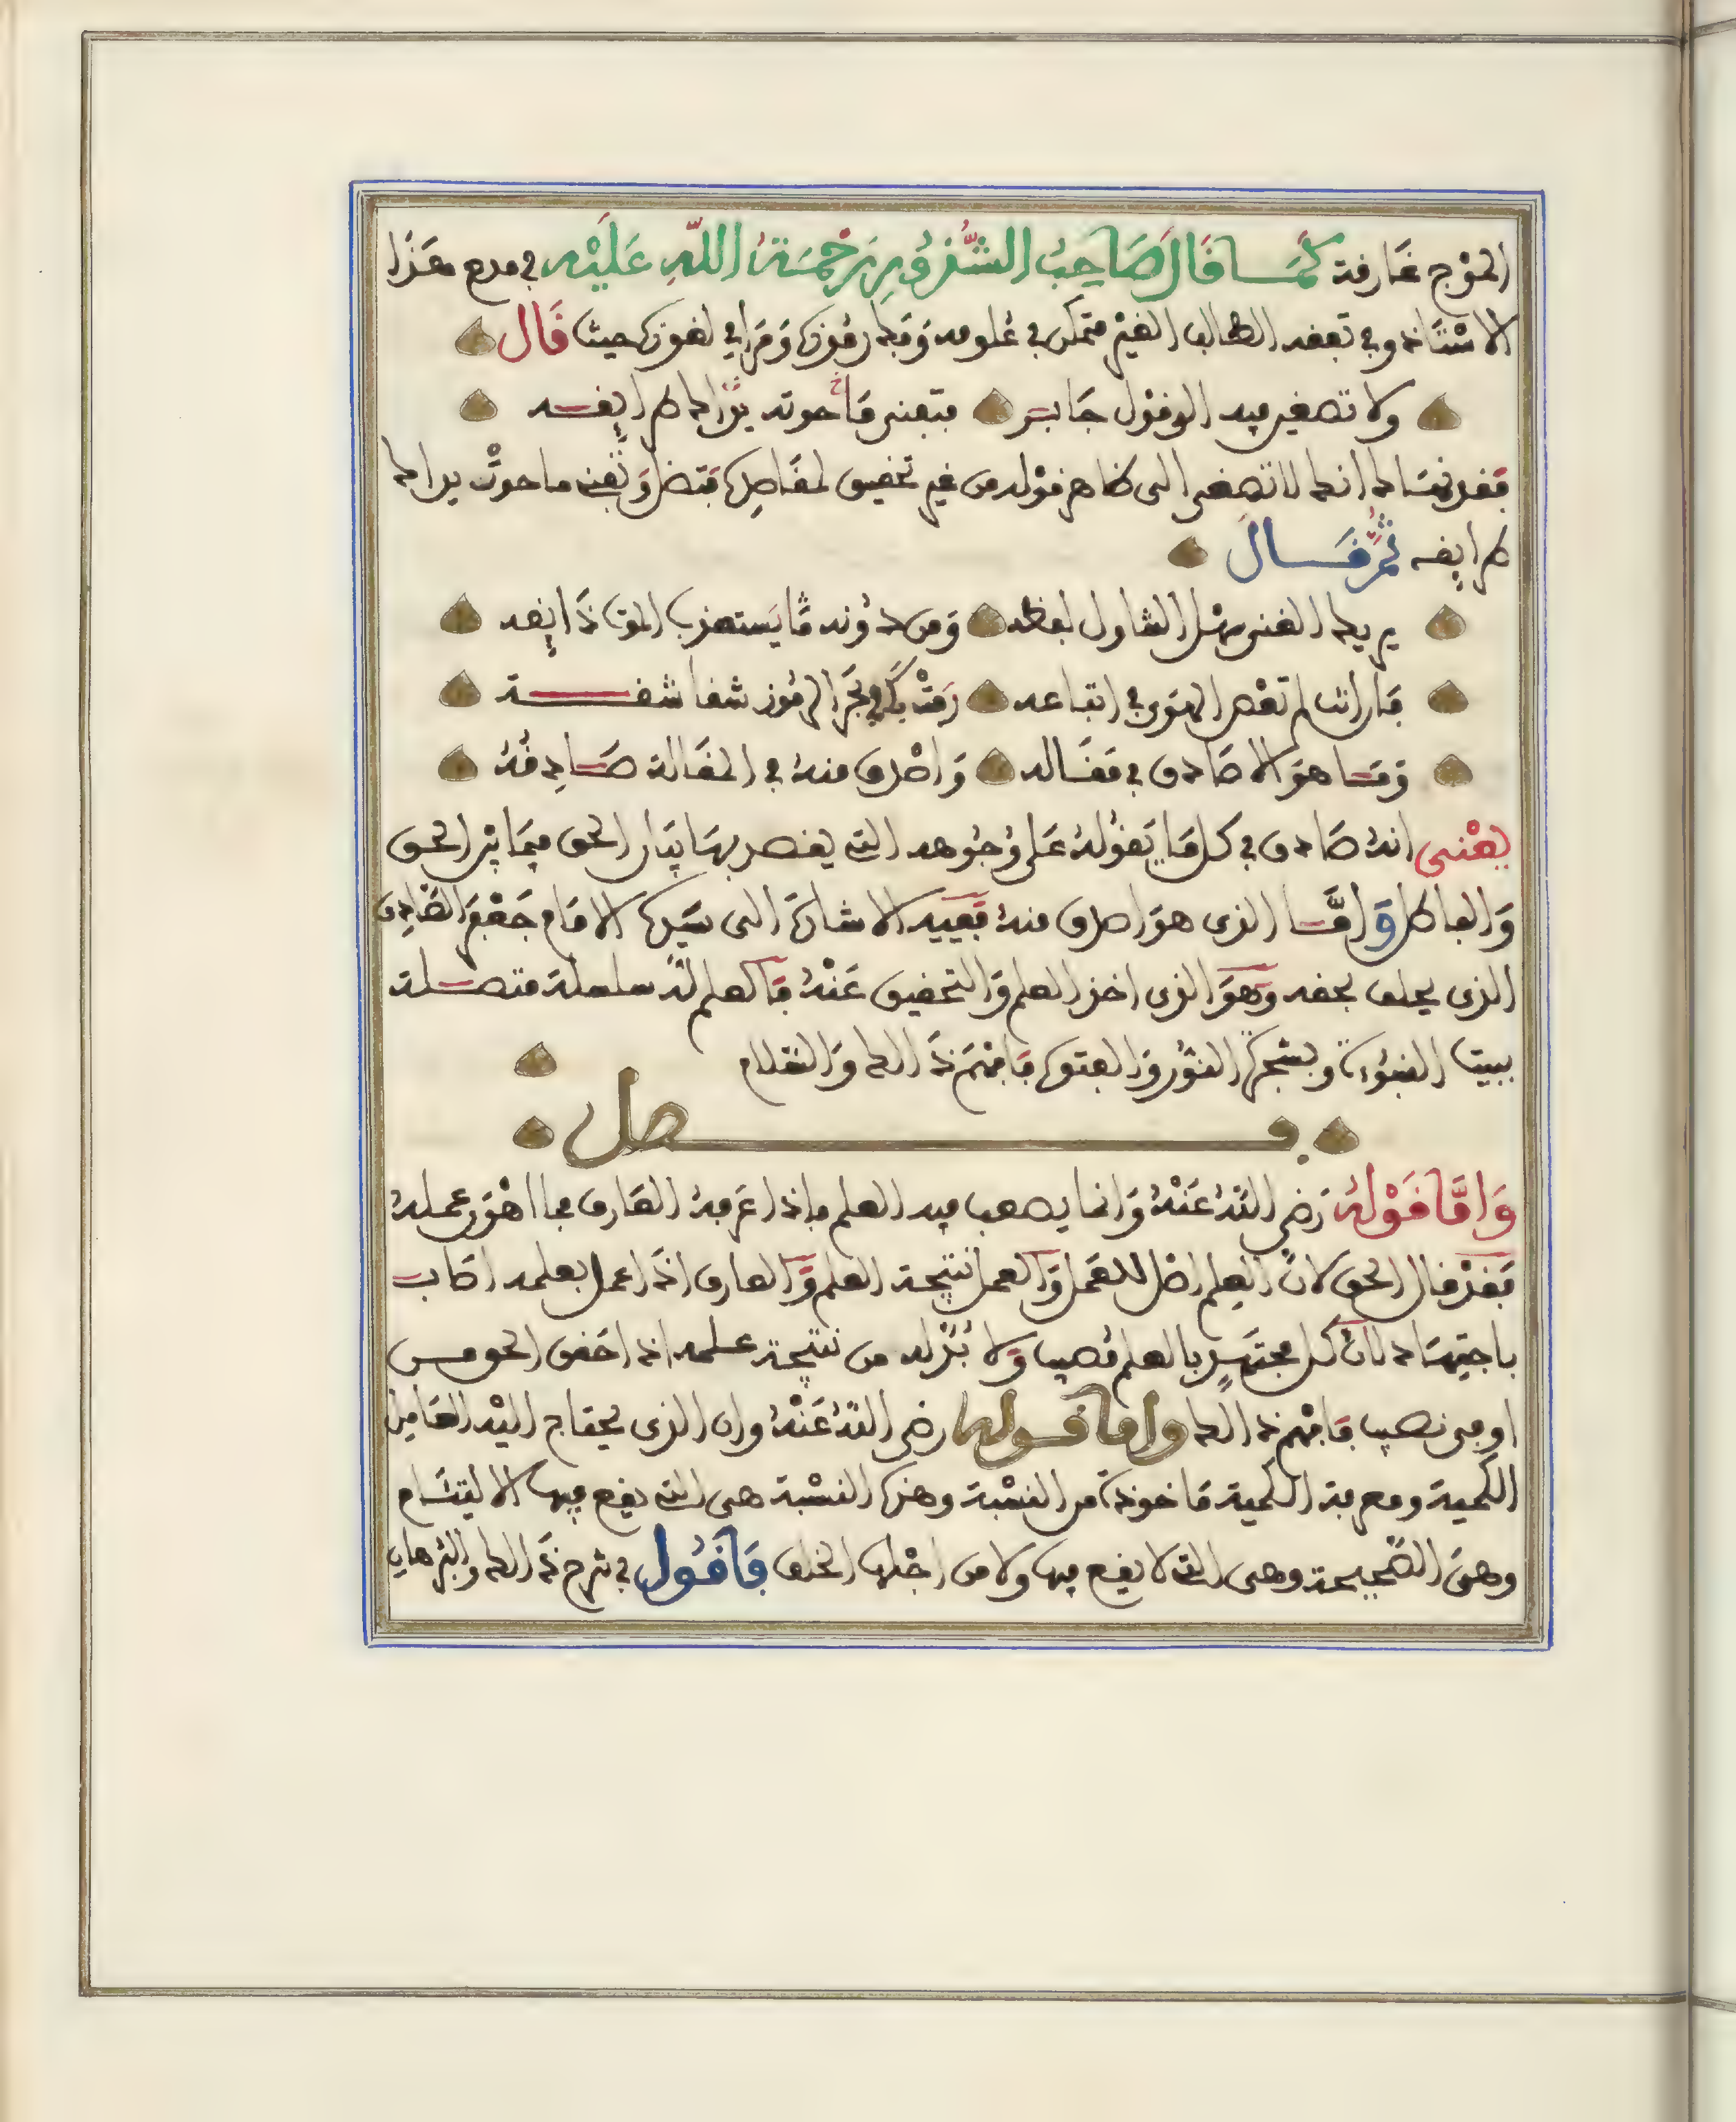 الموج غارفة كما قال صاحب الشذور رحمة الله عليه في مدح هذا
الاستاذ وفي تعفد الطالب الغير متمكن في علومه وفك رموزه ومرامي لغوزه حيث قال
ولا تصغين فيه الى قول جابر فتعني ما حوته يداك طرايفه
فقد نهاك انك لا تصغى الى ظاهر قوله من غير تحقيق لمقاصده فتضل وتفنى ما حوت يداك
طرايفه ثم قال
يريك الغنى سهل التناول لفظه ومن دونه ما يستعذب الموت ذايفه
فان انت لم تعص الهوى في اتباعه رمت بك في بحر الرموز شفاشفة
وما هو الا صادق في مقاله واصدق منه في المقالة صادقه
يعنى انه صادق في كل ما يقوله على وجوهه التي يقصد بها بيان الحق فيما بين الحق
والباطل واما الذي هو اصدق منه ففيه الاشارة الى سيده الامام جعفر الصادق
الذي يحلف بحقه وهو الذي اخذ العلم والتحقيق عنه فالعلم له سلسلة متصلة
ببيت النبوءة وبشجرة النور والفتوة فافهم ذالك والسلام
فصل
واما قوله رضي الله عنه وانما يصعب فيه العلم فاذا عرفه العارف فما اهون عمله
فقد قال الحق لان العلم اصل للعمل والعمل نتيجة العلم والعارف اذا عمل بعلمه اصاب
باجتهاده لان كل مجتهد بالعلم مصيب ولا بد له من نتيجة علمه اذ اخفى الحق من
اوفى نصيب فافهم ذالك واما قوله رضي الله عنه وان الذي يحتاج اليه العامل
الكمية ومعرفة الكمية ماخوذة من النسبة وهذه النسبة هي التي يقع فيها الاليتام
وهي الصحيحة وهي التي لا يقع فيها ولا من اجلها الخلف فاقول في شرح ذالك والبرهان